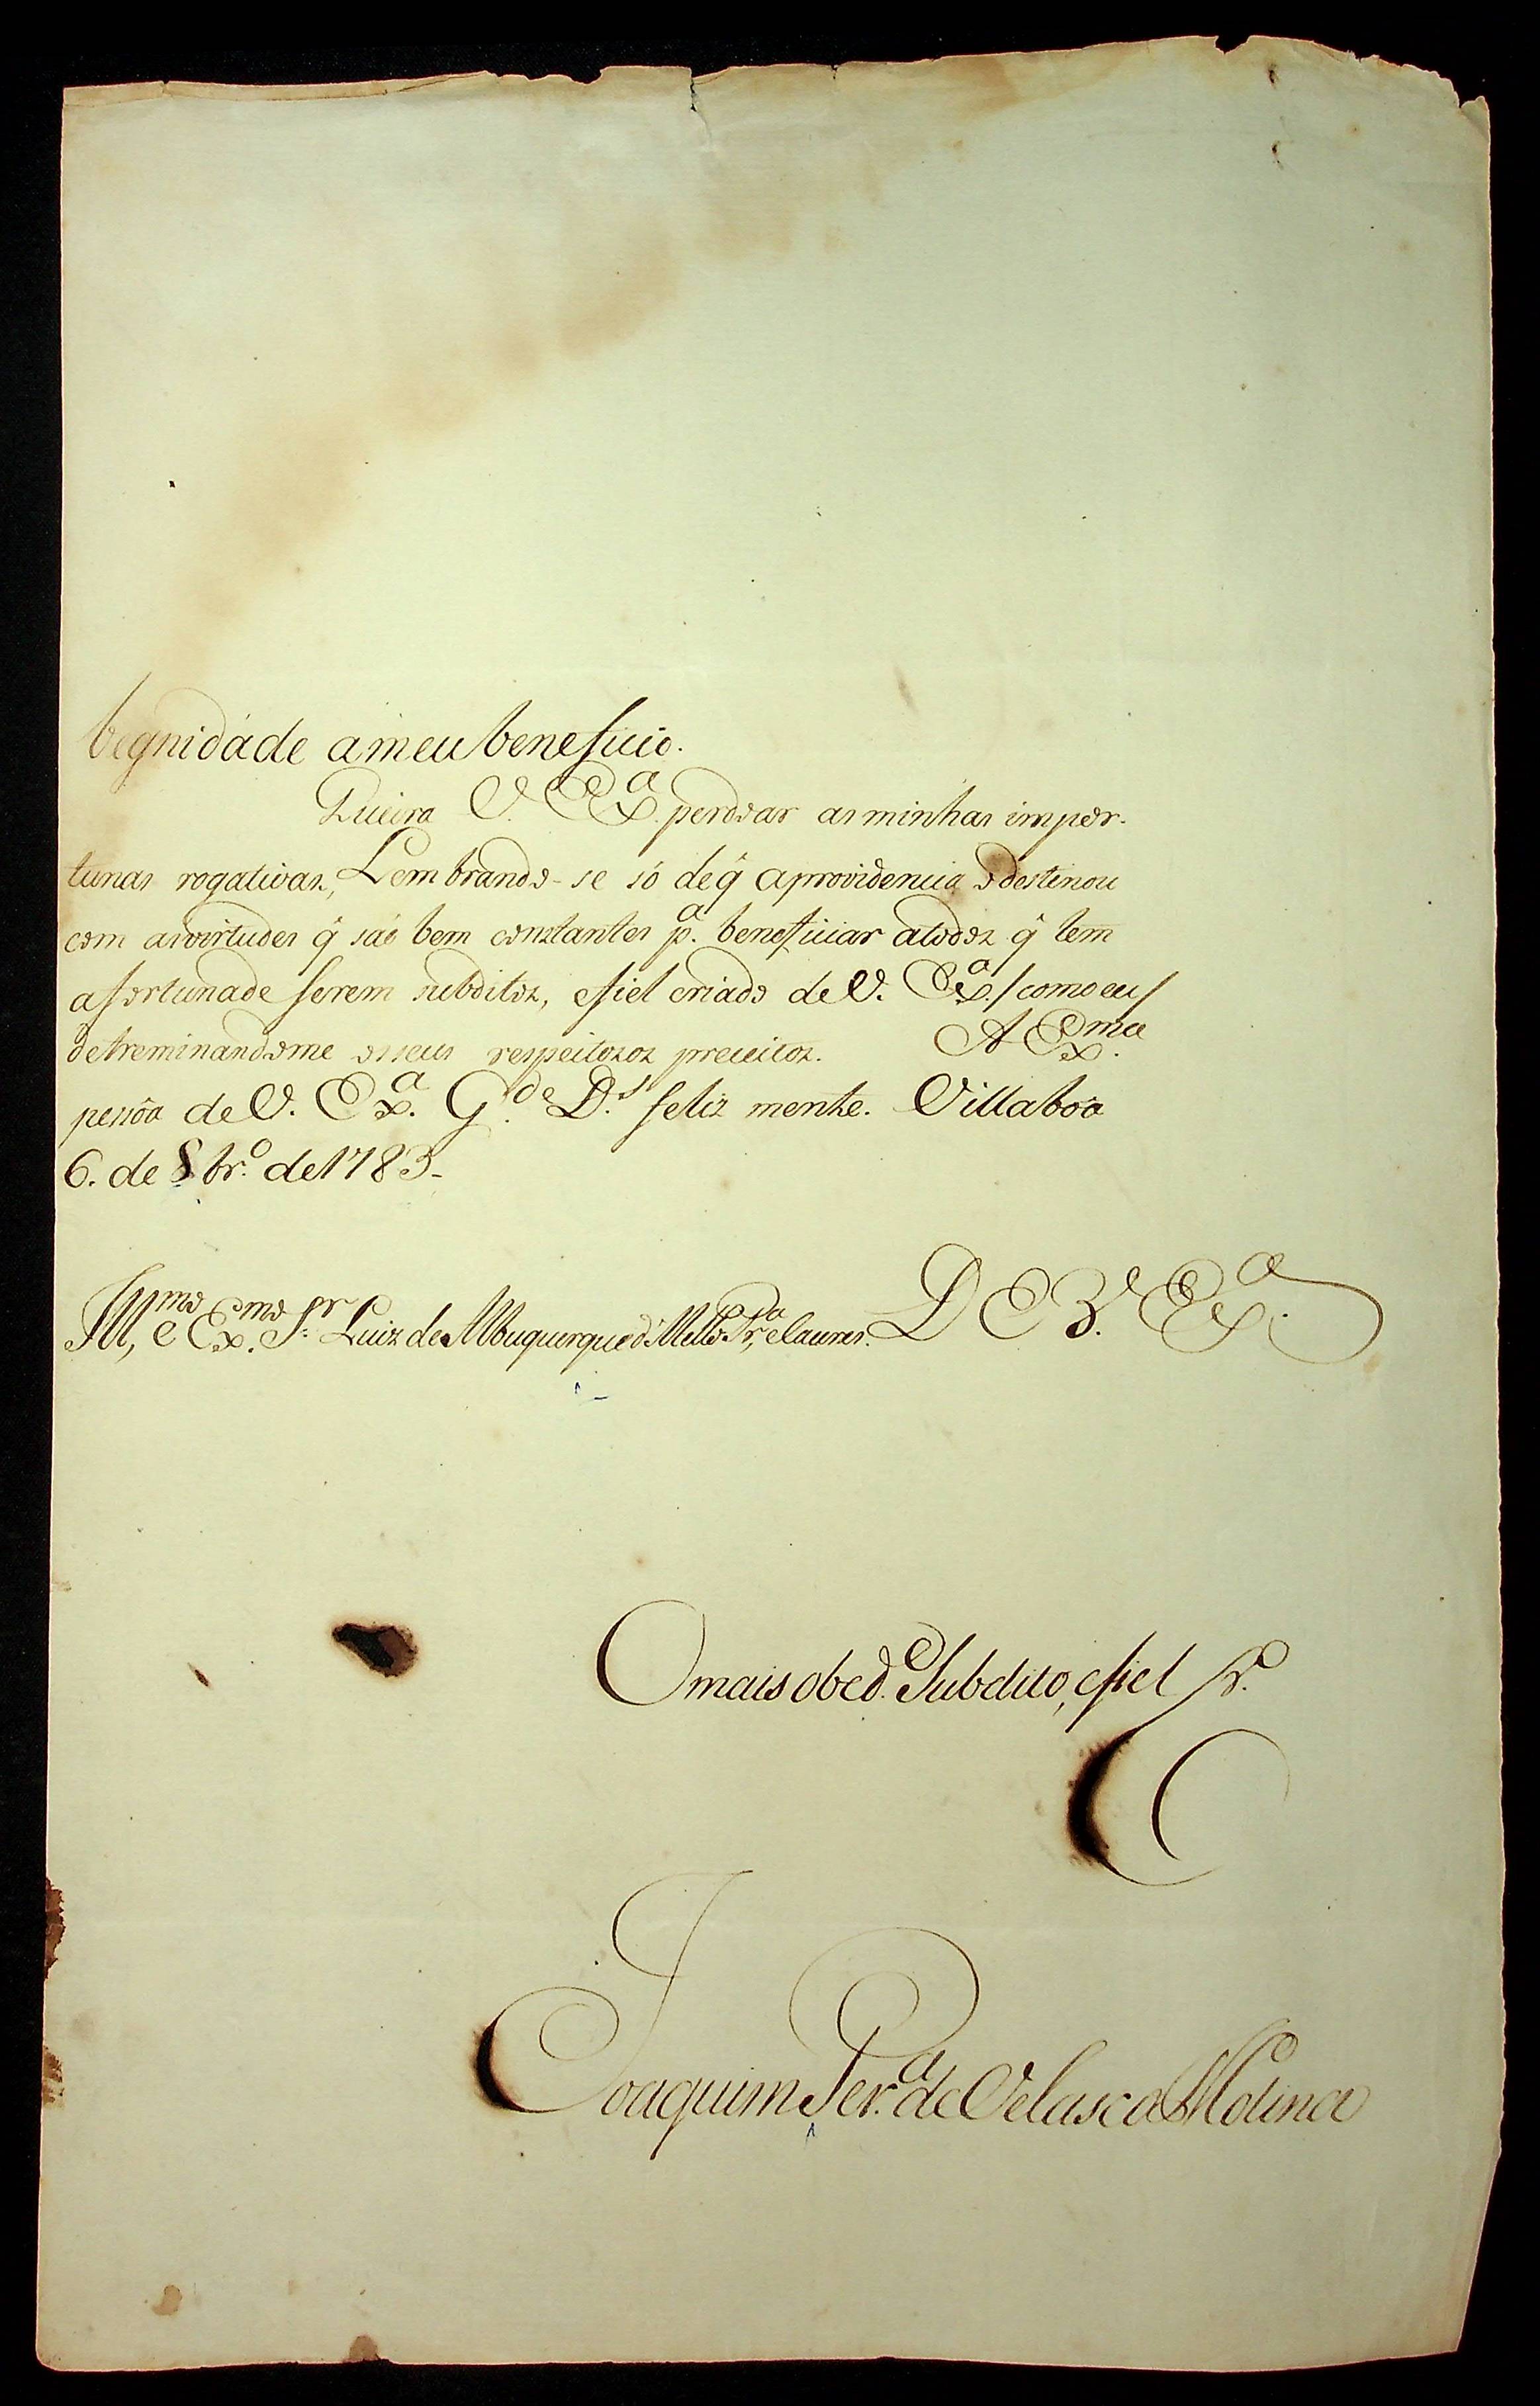 begnidáde ameu beneficio.
Queira V. Exª. perdoar as minhas impor-
tunas rogativas, Lembrando-se só deq̂ aprovidencia o destinou
com asvirtudes q̂ saó bem constantes pª. beneficiar atodoz q̂ tem
afortunade serem subditoz, efiel criado de V. Exª. / como eu /
detreminandome osseus respeitozoz preceitoz. A Exma.
pessôa de V. Exª. Gde. Ds. feliz mente. Villaboa
6. de 8brº. de 1783-
Illmo, e Exmo. Sr. Luiz de Albuquerque d' Mello Prª, e Caceres. DE V. Exª.
O mais obed.e Subdito, efiel Cr.º
Joaquim Perª. de Velasco Molina